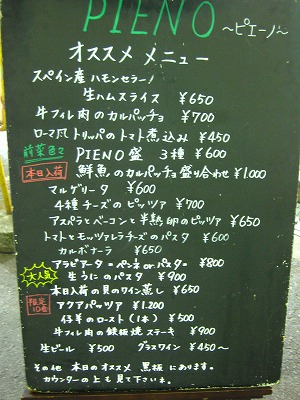 PIENO ～ピエーノ～
オススメ メニュー
スペイン産 ハモンセラーノ
生ハムスライス ￥650
牛フィレ肉のカルパッチョ ￥700
ローマ風 トリッパのトマト煮込み ￥450
前菜色々 PIENO盛 3種 ￥600
本日入荷 鮮魚のカルパッチョ盛り合わせ ￥1.000
マルゲリータ ￥600
4種チーズのピッツァ ￥700
アスパラとベーコンと半熟卵のピッツァ ￥650
トマトとモッツァレラチーズのパスタ ￥600
カルボナーラ ￥650
アラビアータ＝ペンネorパスタ＝ ￥800
大人気 生うにのパスタ ￥900
本日入荷の貝のワイン蒸し ￥650
限定10食 アクアパッツァ ￥1.200
仔羊のロースト(1本) ￥500
牛フィレ肉の鉄板焼ステーキ ￥900
生ビール ￥500 グラスワイン ￥450～
その他 本日のオススメ 黒板にあります。
カウンターの上も見て下さいネ。